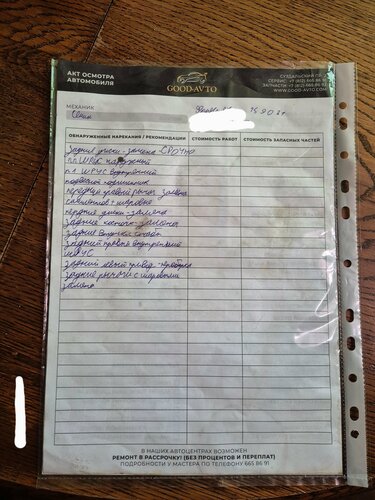 АКТ ОСМОТРА
АВТОМОБИЛЯ
GOOD-AVTO
СУЗДАЛЬСКИЙ
СЕРВИС: +7 (812) 665 86 91
ЗАПЧАСТИ: +7 (812) 665 86
WWW.GOOD-AVTO.COM
МЕХАНИК
ОБНАРУЖЕННЫЕ НАРЕКАНИЯ / РЕКОМЕНДАЦИИ
СТОИМОСТЬ РАБОТ
СТОИМОСТЬ ЗАПАСНЫХ ЧАСТЕЙ
задние диски - замена СРОЧНО
п.п ШРУС наружный
п.п ШРУС внутренний
подвесной подшипник
передний левый рычаг замена
сайлентблок + шаровые
передние диски - замена
задние колодки - замена
задние
задний правый внутренний
ШРУС
задний левый привод
задние рычаги с шаровыми
замена
В НАШИХ АВТОЦЕНТРАХ ВОЗМОЖЕН
РЕМОНТ В РАССРОЧКУ! (БЕЗ ПРОЦЕНТОВ И ПЕРЕПЛАТ)
ПОДРОБНОСТИ У МАСТЕРА ПО ТЕЛЕФОНУ 665 86 91